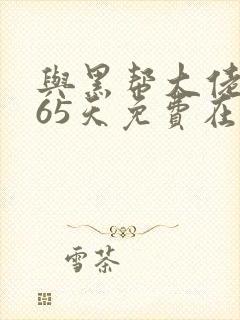 與黑帮大佬
65天免費在
雪茶